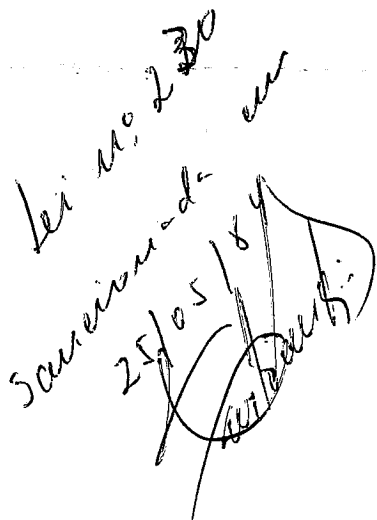 Lei nº 230
Sancionada em
25/05/84